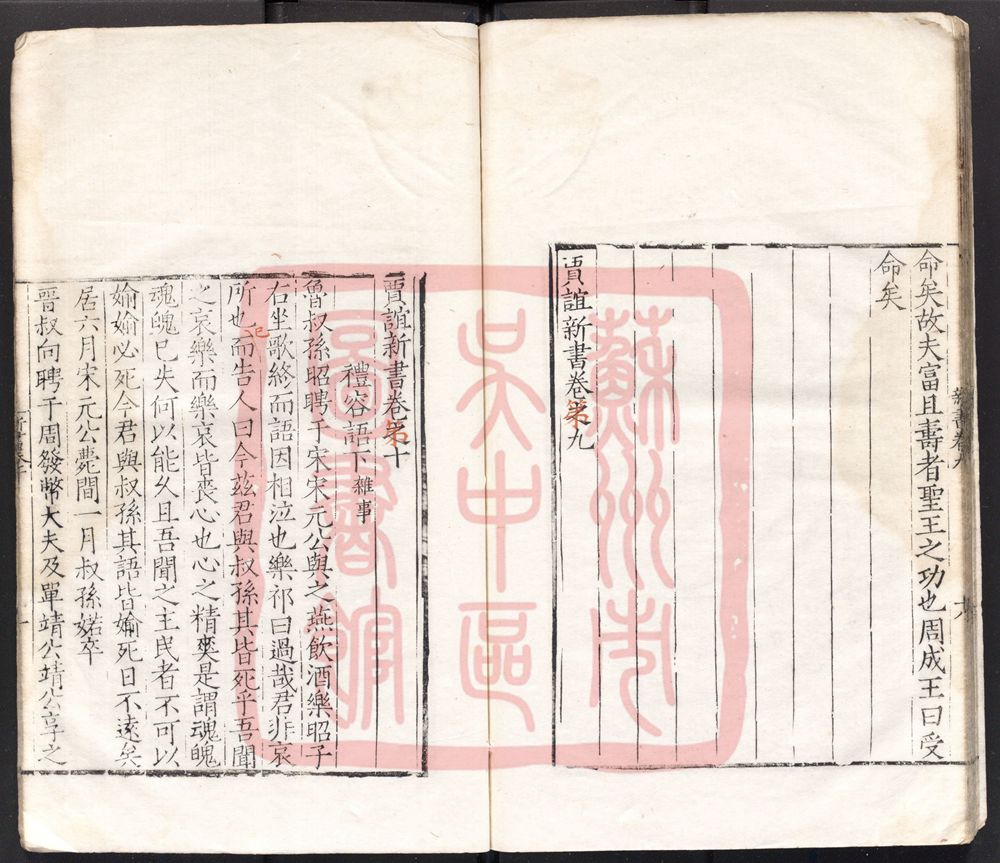 命矣故夫富且壽者聖王之功也周成王曰受
命矣
賈誼新書卷第九
新書卷九
六
賈誼新書卷第十
禮容語下 雜事
魯叔孫昭聘于宋宋元公與之燕飲酒樂昭子
右坐歌終而語因相泣也樂祁曰過哉君非哀
所也而告人曰今茲君與叔孫其皆死乎吾聞
之哀樂而樂哀皆喪心也心之精爽是謂魂魄
魂魄已失何以能久且吾聞之主民者不可以
婾婾必死今君與叔孫其語皆婾死日不遠矣
居六月宋元公薨間一月叔孫婼卒
晉叔向聘于周發幣大夫及單靖公靖公享之
蘇州市
吳中區
圖書館